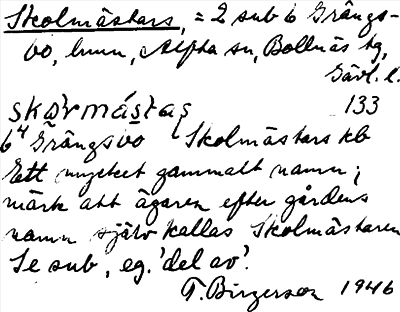 Skolmästars, = 2 sub 6 Grängs-
bo, hmn, Alfta sn, Bollnäs tg,
Gävl. l.
133
6⁴ Grängsbo Skolmästars kb
Ett mycket gammalt namn;
märk att ägaren efter gårdens
namn själv kallas Skolmästaren
Se sub, eg. 'del av'.
T. Birgerson 1946